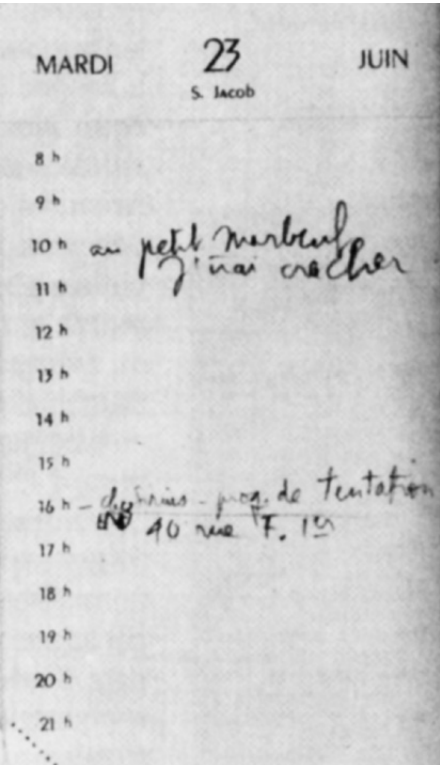 MARDI 23 JUIN
S. JACOB
8 h
9 h
10 h au petit Marbeuf
J'irai cracher
11 h
12 h
13 h
14 h
15 h
16 h - de tentation
40 rue F. 1er
17 h
18 h
19 h
20 h
21 h